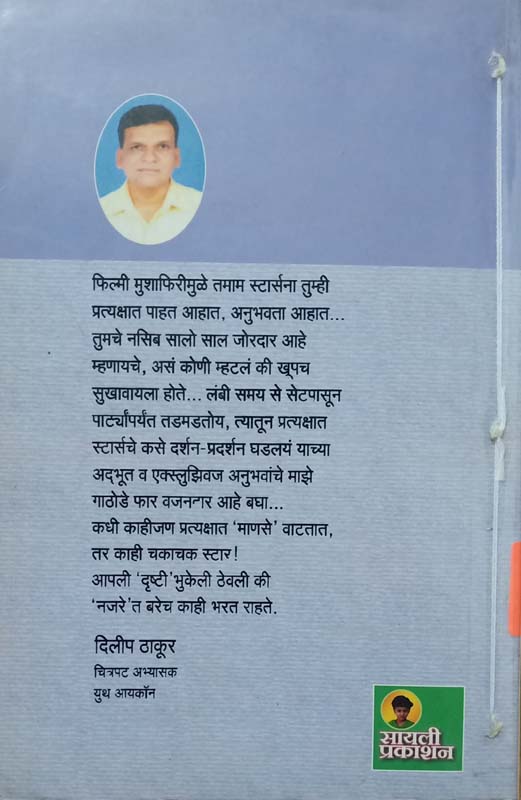 फिल्मी मुशाफिरीमुळे तमाम स्टार्सना तुम्ही
प्रत्यक्षात पाहत आहात, अनुभवता आहात...
तुमचे नसिब सालो साल जोरदार आहे
म्हणायचे, असं कोणी म्हटलं की खूपच
सुखावायला होते... लंबी समय से सेटपासून
पार्ट्यांपर्यंत तडमडतोय, त्यातून प्रत्यक्षात
स्टार्सचे कसे दर्शन-प्रदर्शन घडलयं याच्या
अद्‌भूत व एक्स्लुझिवज अनुभवांचे माझे
गाठोडे फार वजनदार आहे बघा...
कधी काहीजण प्रत्यक्षात ‘माणसे’ वाटतात,
तर काही चकाचक स्टार!
आपली ‘दृष्टी’ भुकेली ठेवली की
‘नजरे’त बरेच काही भरत राहते.
दिलीप ठाकूर
चित्रपट अभ्यासक
युथ आयकॉन
सायली
प्रकाशन